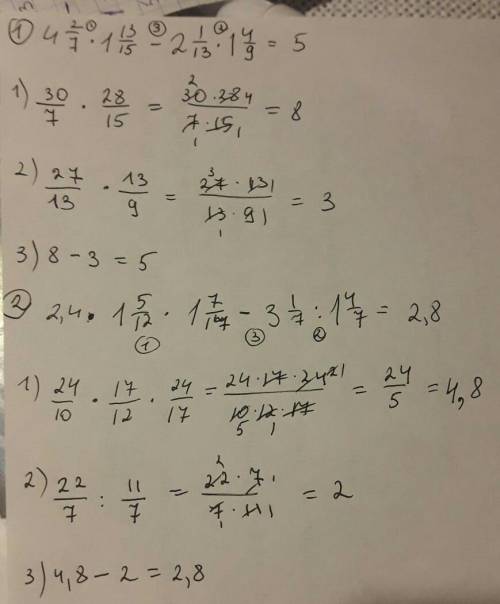 ① 4 2/7 · 1 13/15 − 2 1/13 · 1 4/9 = 5
1) 30/7 · 28/15 = 30 · 28/7 · 15 = 8
2) 27/13 · 13/9 = 27 · 13/13 · 9 = 3
3) 8 − 3 = 5
② 2,4 · 1 5/12 · 1 7/17 − 3 1/7 : 1 4/7 = 2,8
① ③ ②
1) 24/10 · 17/12 · 24/17 = 24 · 17 · 24/10 · 12 · 17 = 24/5 = 4,8
2) 22/7 : 11/7 = 22 · 7/7 · 11 = 2
3) 4,8 − 2 = 2,8